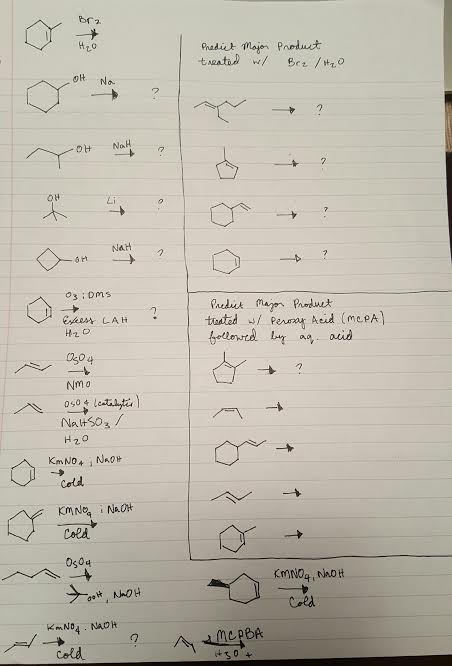 Br2
H2O
OH Na
?
OH NaH
?
OH
Li
?
OH NaH
?
O3 ; DMS
Excess LAH
H2O
?
OsO4
NMO
OsO4 (catalytic)
NaHSO3 /
H2O
KmNO4 ; NaOH
Cold
KmNO4 ; NaOH
Cold
OsO4
OOH, NaOH
KmNO4 . NaOH
Cold
?
MCPBA
H3O +
Predict Major Product
treated w/ Br2 / H2O
?
?
?
?
Predict Major Product
treated w/ Peroxy Acid (MCPA)
followed by aq. acid
?
KMNO4, NaOH
Cold